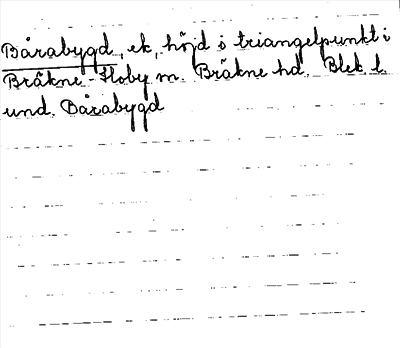 Bårabygd, ek, höjd o triangelpunkt i
Bräkne-Hoby sn. Bräkne hd. Blek. l.
und. Bårabygd